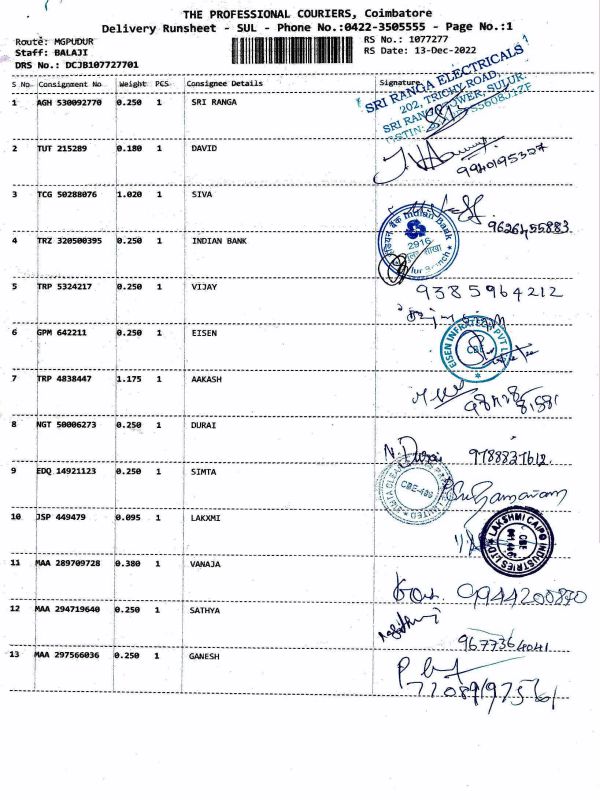 THE PROFESSIONAL COURIERS, Coimbatore
Delivery Runsheet - SUL - Phone No.:0422-3505555 - Page No.:1
Route: MGPUDUR
RS No.: 1077277
Staff: BALAJI
RS Date: 13-Dec-2022
DRS No.: DCJB107727701
S No Consignment No Weight PCS Consignee Details Signature
1 AGH 530092770 0.250 1 SRI RANGA
SRI RANGA ELECTRICALS
202, TRICHY ROAD,
SRI RANGA TOWER, SULUR.
2 TUT 215289 0.180 1 DAVID
9940195327
3 TCG 50288076 1.020 1 SIVA
9626455883
4 TRZ 320500395 0.250 1 INDIAN BANK
इंडियन बैंक Indian Bank
2916
5 TRP 5324217 0.250 1 VIJAY
9385964212
6 GPM 642211 0.250 1 EISEN
EISEN INFRATEC PVT LTD
CBE
7 TRP 4838447 1.175 1 AAKASH
8 NGT 50006273 0.250 1 DURAI
N. Durai 9788837612
9 EDQ 14921123 0.250 1 SIMTA
10 JSP 449479 0.095 1 LAKXMI
LAKSHMI CAIPO INDUSTRIES LTD
CBE
11 MAA 289709728 0.380 1 VANAJA
9944200890
12 MAA 294719640 0.250 1 SATHYA
9677364041
13 MAA 297566036 0.250 1 GANESH